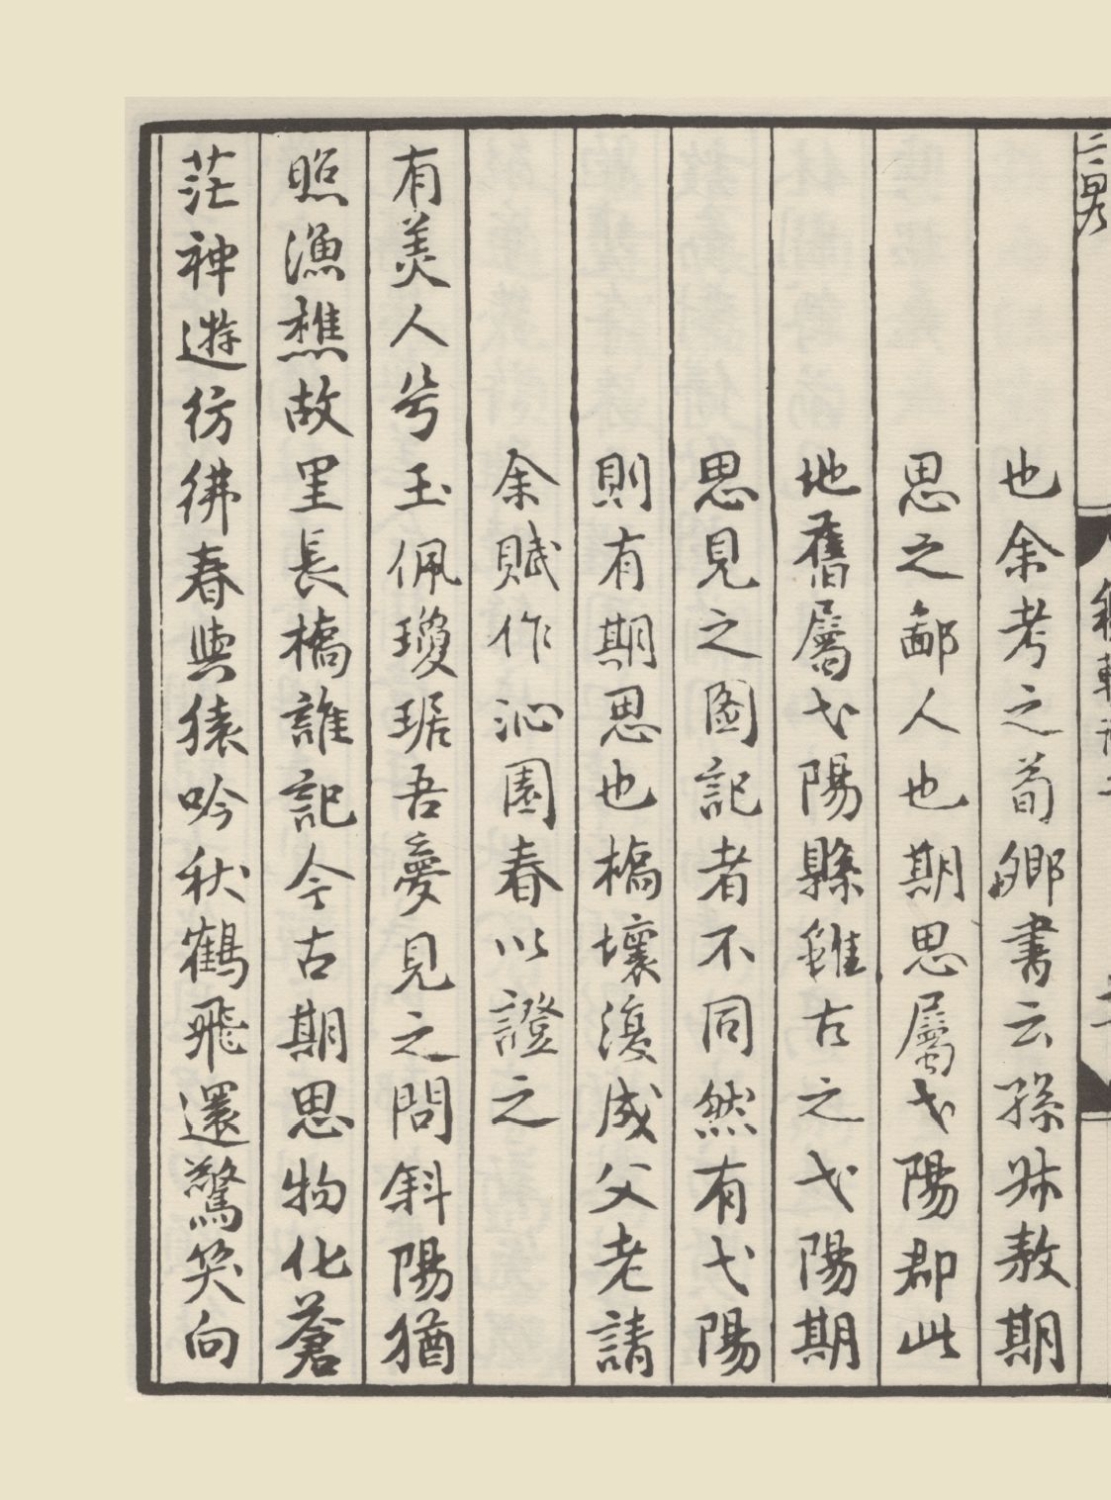 也余考之荀卿書云孫叔敖期
思之鄙人也期思屬弋陽郡此
地舊屬弋陽縣雖古之弋陽期
思見之圖記者不同然有弋陽
則有期思也橋壞復成父老請
余賦作沁園春以證之
有美人兮玉佩瓊琚吾夢見之問斜陽猶
照漁樵故里長橋誰記今古期思物化蒼
茫神遊彷彿春與猿吟秋鶴飛還驚笑向